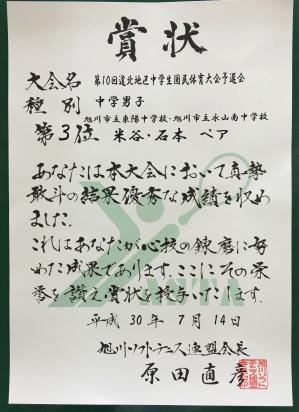 賞状
大会名 第10回道北地区中学生国民体育大会予選会
種別 中学男子
旭川市立東陽中学校・旭川市立永山南中学校
第3位 米谷・石本 ペア
あなたは本大会において真勢
敢斗の結果優秀な成績を収め
ました.
これはあなたが心技の錬磨に努
めた成果であります.ここにその栄
誉を讃え賞状を授与いたします.
平成 30年 7月 14日
旭川ソフトテニス連盟会長
原田直彦